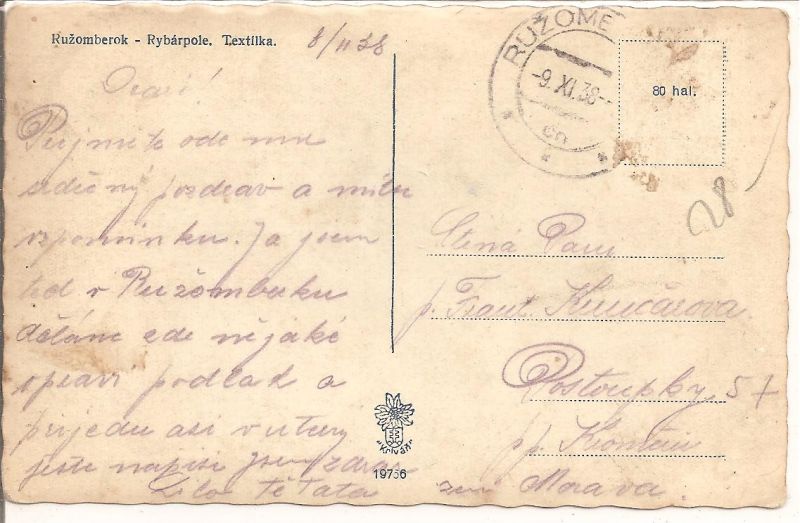 Ružomberok - Rybárpole, Textilka.
8/11 38
Drazí!
Přijměte ode mne
srdečný pozdrav a milou
vzpomínku. Ja jsem
teď v Ružomberku
děláme zde nějaké
opravi podlad a
prijedu asi v utery
jeste napisi jsem zdrav
Tata
RUŽOME
-9.XI.38-
80 hal.
28
Ctěná Paní
p. Frant Kunčarova
Postoupky 57
pp. Kroměříž
země Morava.
"Kriváň"
19756